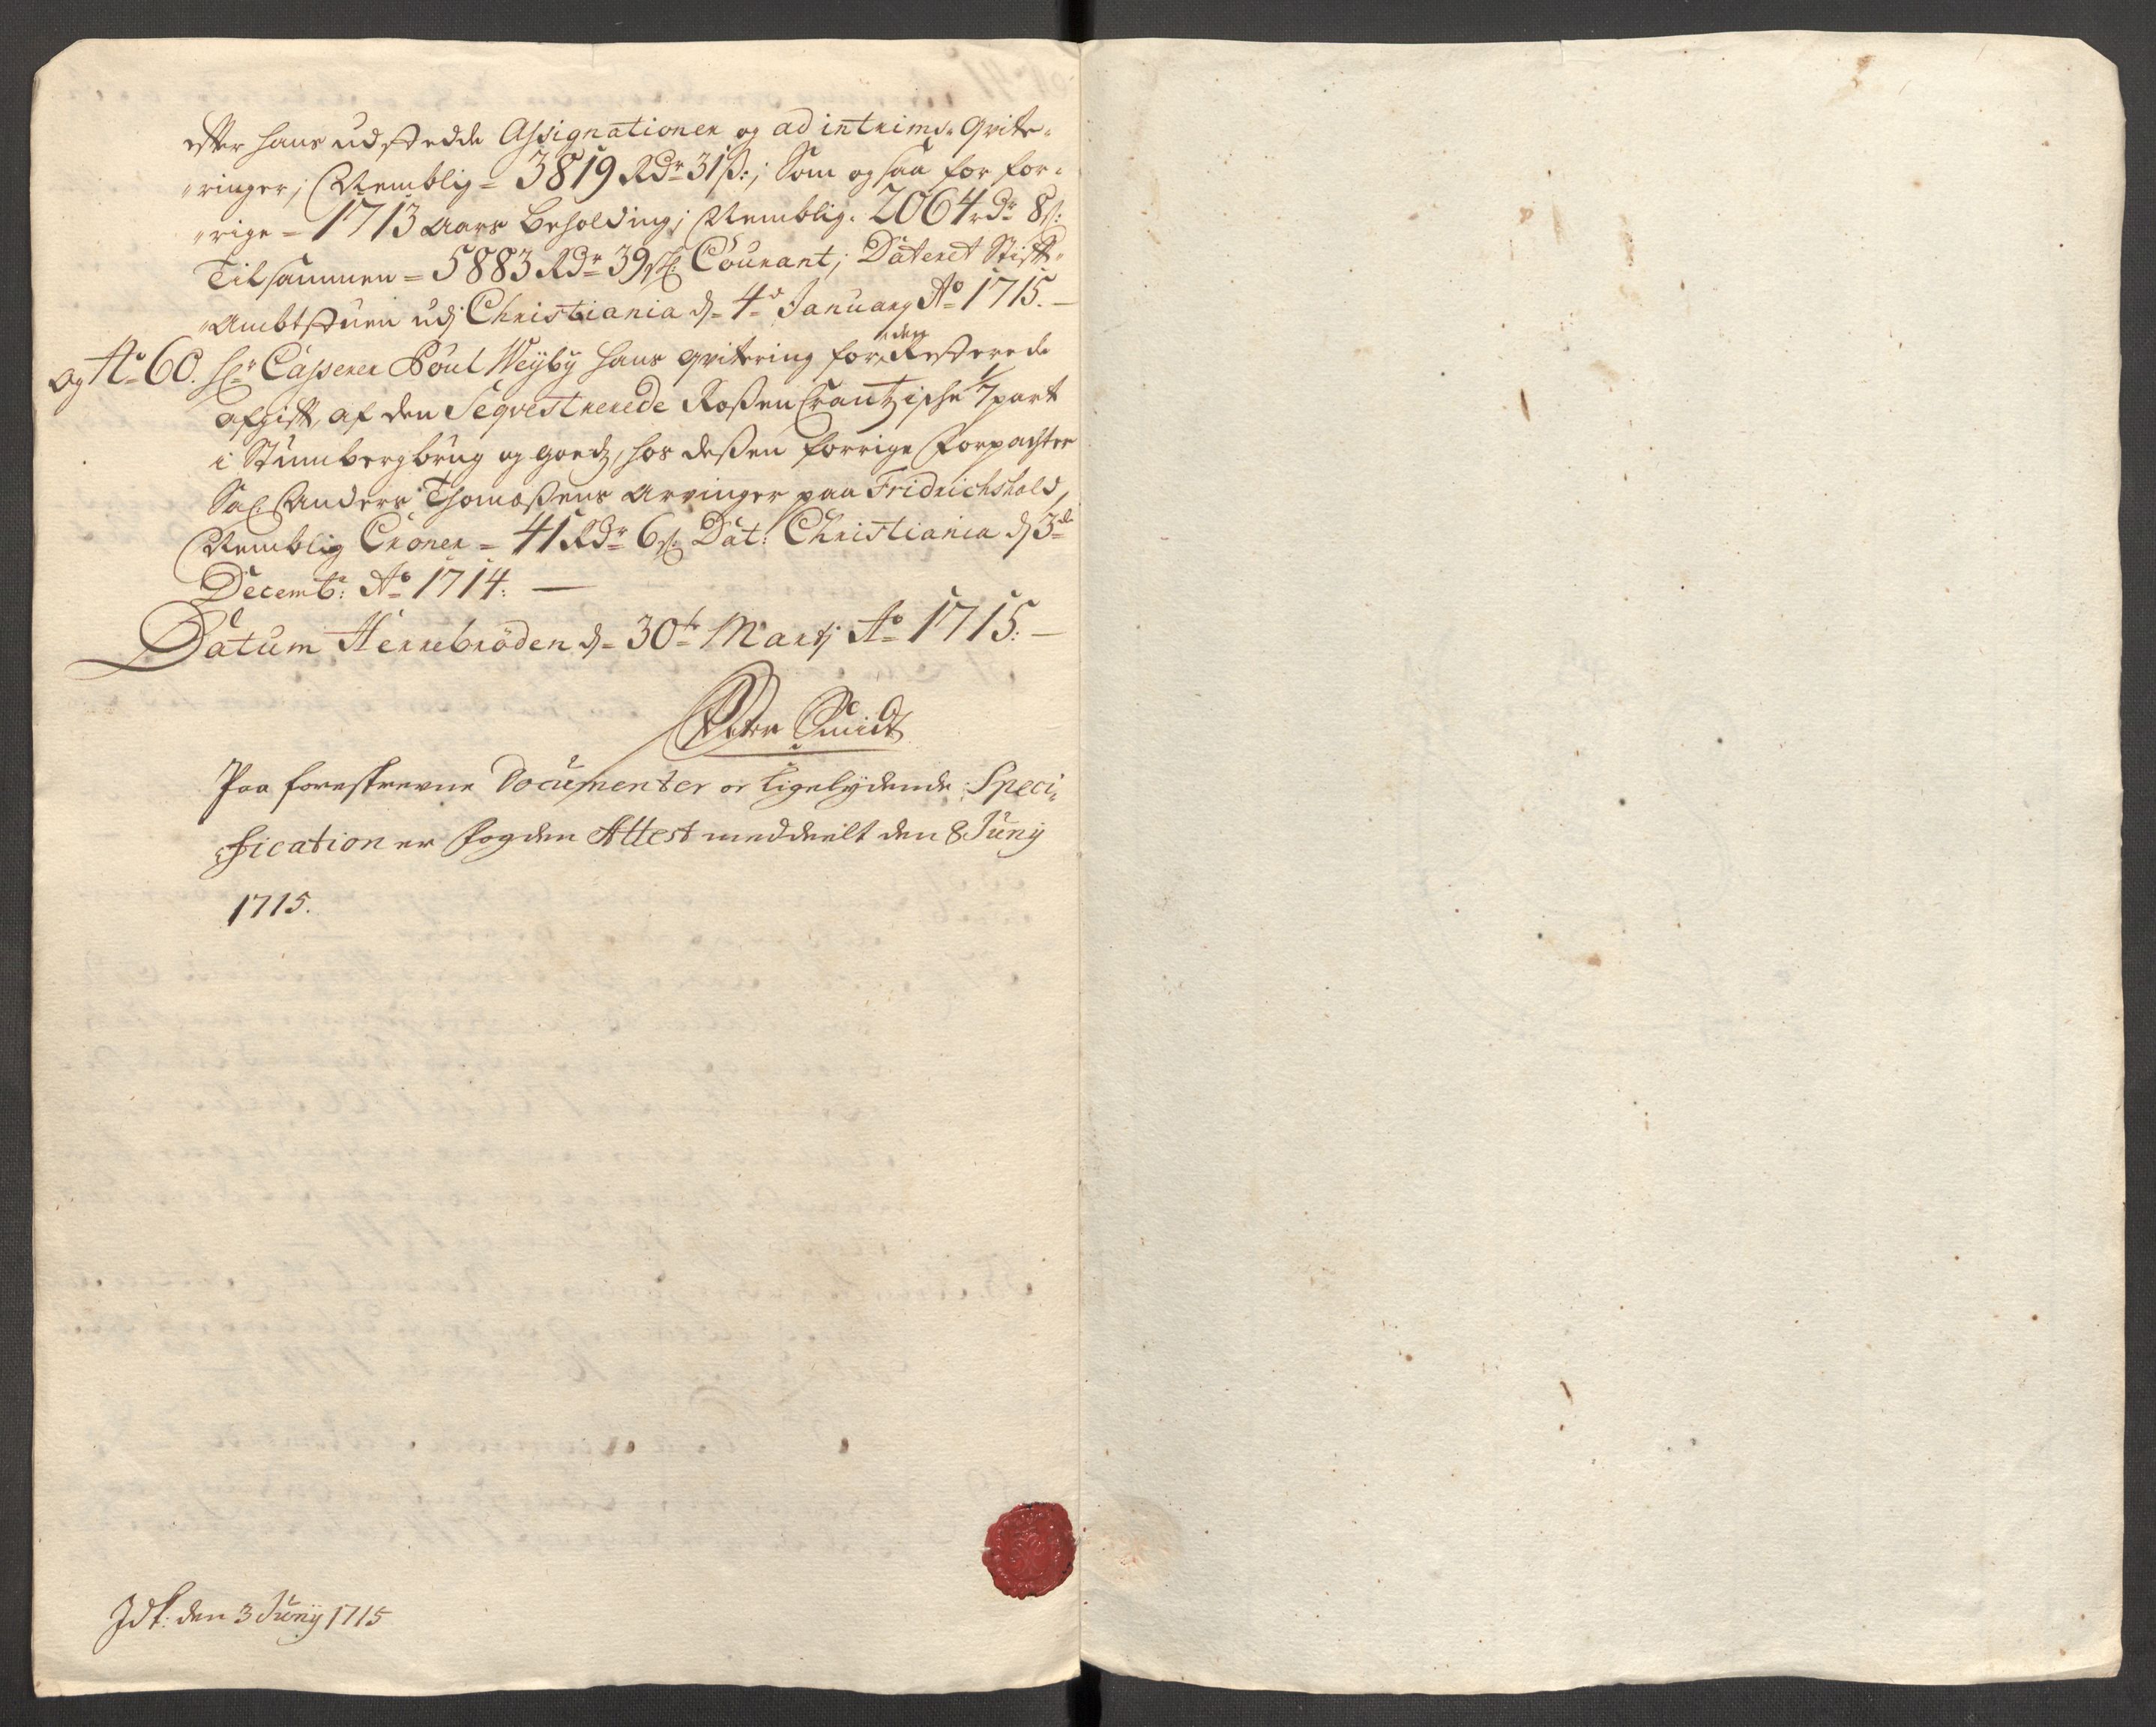 effter hans udstedde Assignationer og ad intrims qvite-
"ringer; Nemblig = 3819 Rdr 31ß:; Som og saa for for-
"rige = 1713 Aars Beholding; Nemblig. 2064 rdr 8ß:
Tilsammen = 5883 Rdr 39ß: Courant; Dateret Stift-
"Ambtstuen udj Christiania d= 4de January Ao 1715. —
og No 60. Hr Casserer Poul Weyby hans qvitering for den Resterede
afgift, af den Seqvestrerede RoßenCrantzische 1/7 part
i Stumbergbrug og goedz, hos deßen forrige Forpachter
Sal. Anders Thomaßens Arvinger paa Fridrichshald,
Nemblig Croner = 41 Rdr 6ß: Dat: Christiania d 3de
Decembr: Ao 1714. —
Datum Herrebröden d= 30te Martj Ao 1715. —
Peter Smidt
Paa foreskrevne Documenter er ligelydende Speci-
fication er fogden Attest meddeelt den 8 Junij
1715.
Idk: den 3 Junij 1715